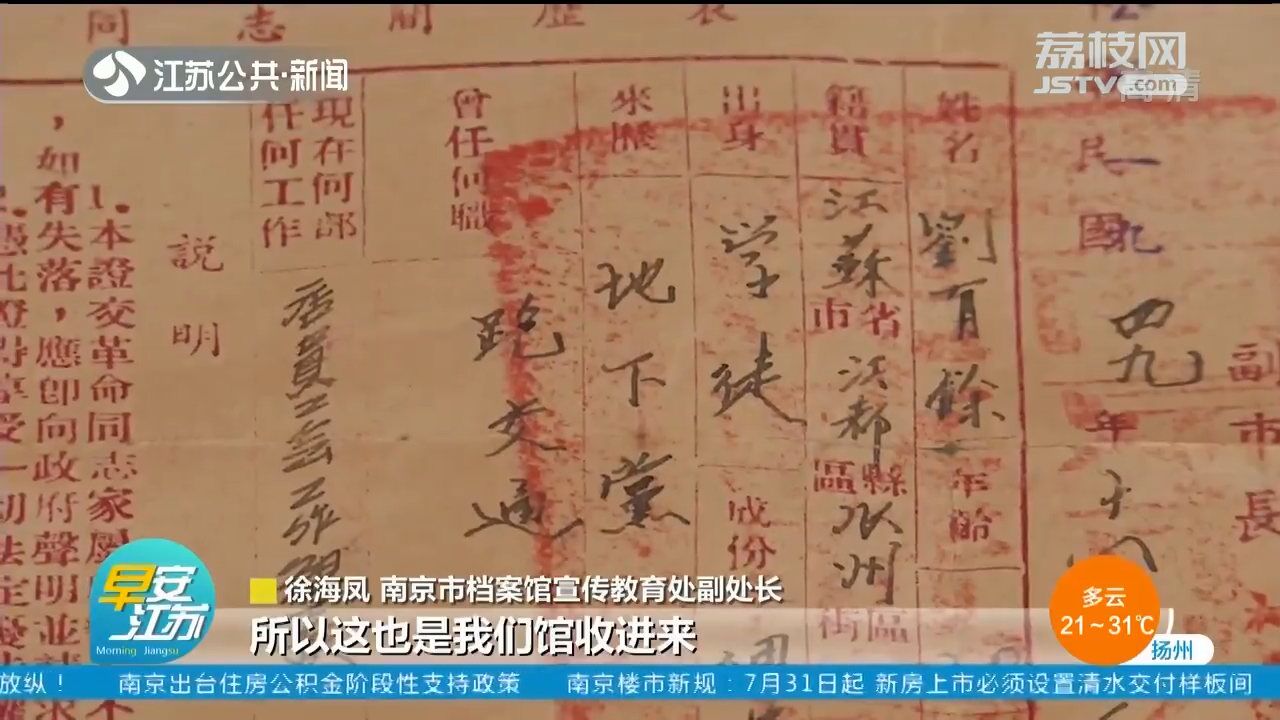 同志簡歷表
江苏公共·新闻
荔枝网
JSTV.com
高清
民國
四九
年
副市長
姓名
劉百餘
年齡
籍貫
江蘇
省市
江都
縣區
瓜州
區街
出身
学徒
成份
來歷
地下黨
曾任何職
跑交通
現在何部
任何工作
店員工会工作
説明
1.本證交革命同志家屬
，如有失落，應即向政府聲明並
早安江苏
Morning Jiangsu
徐海凤 南京市档案馆宣传教育处副处长
所以这也是我们馆收进来
多云
21~31℃
扬州
放纵！ 南京出台住房公积金阶段性支持政策 南京楼市新规：7月31日起 新房上市必须设置清水交付样板间